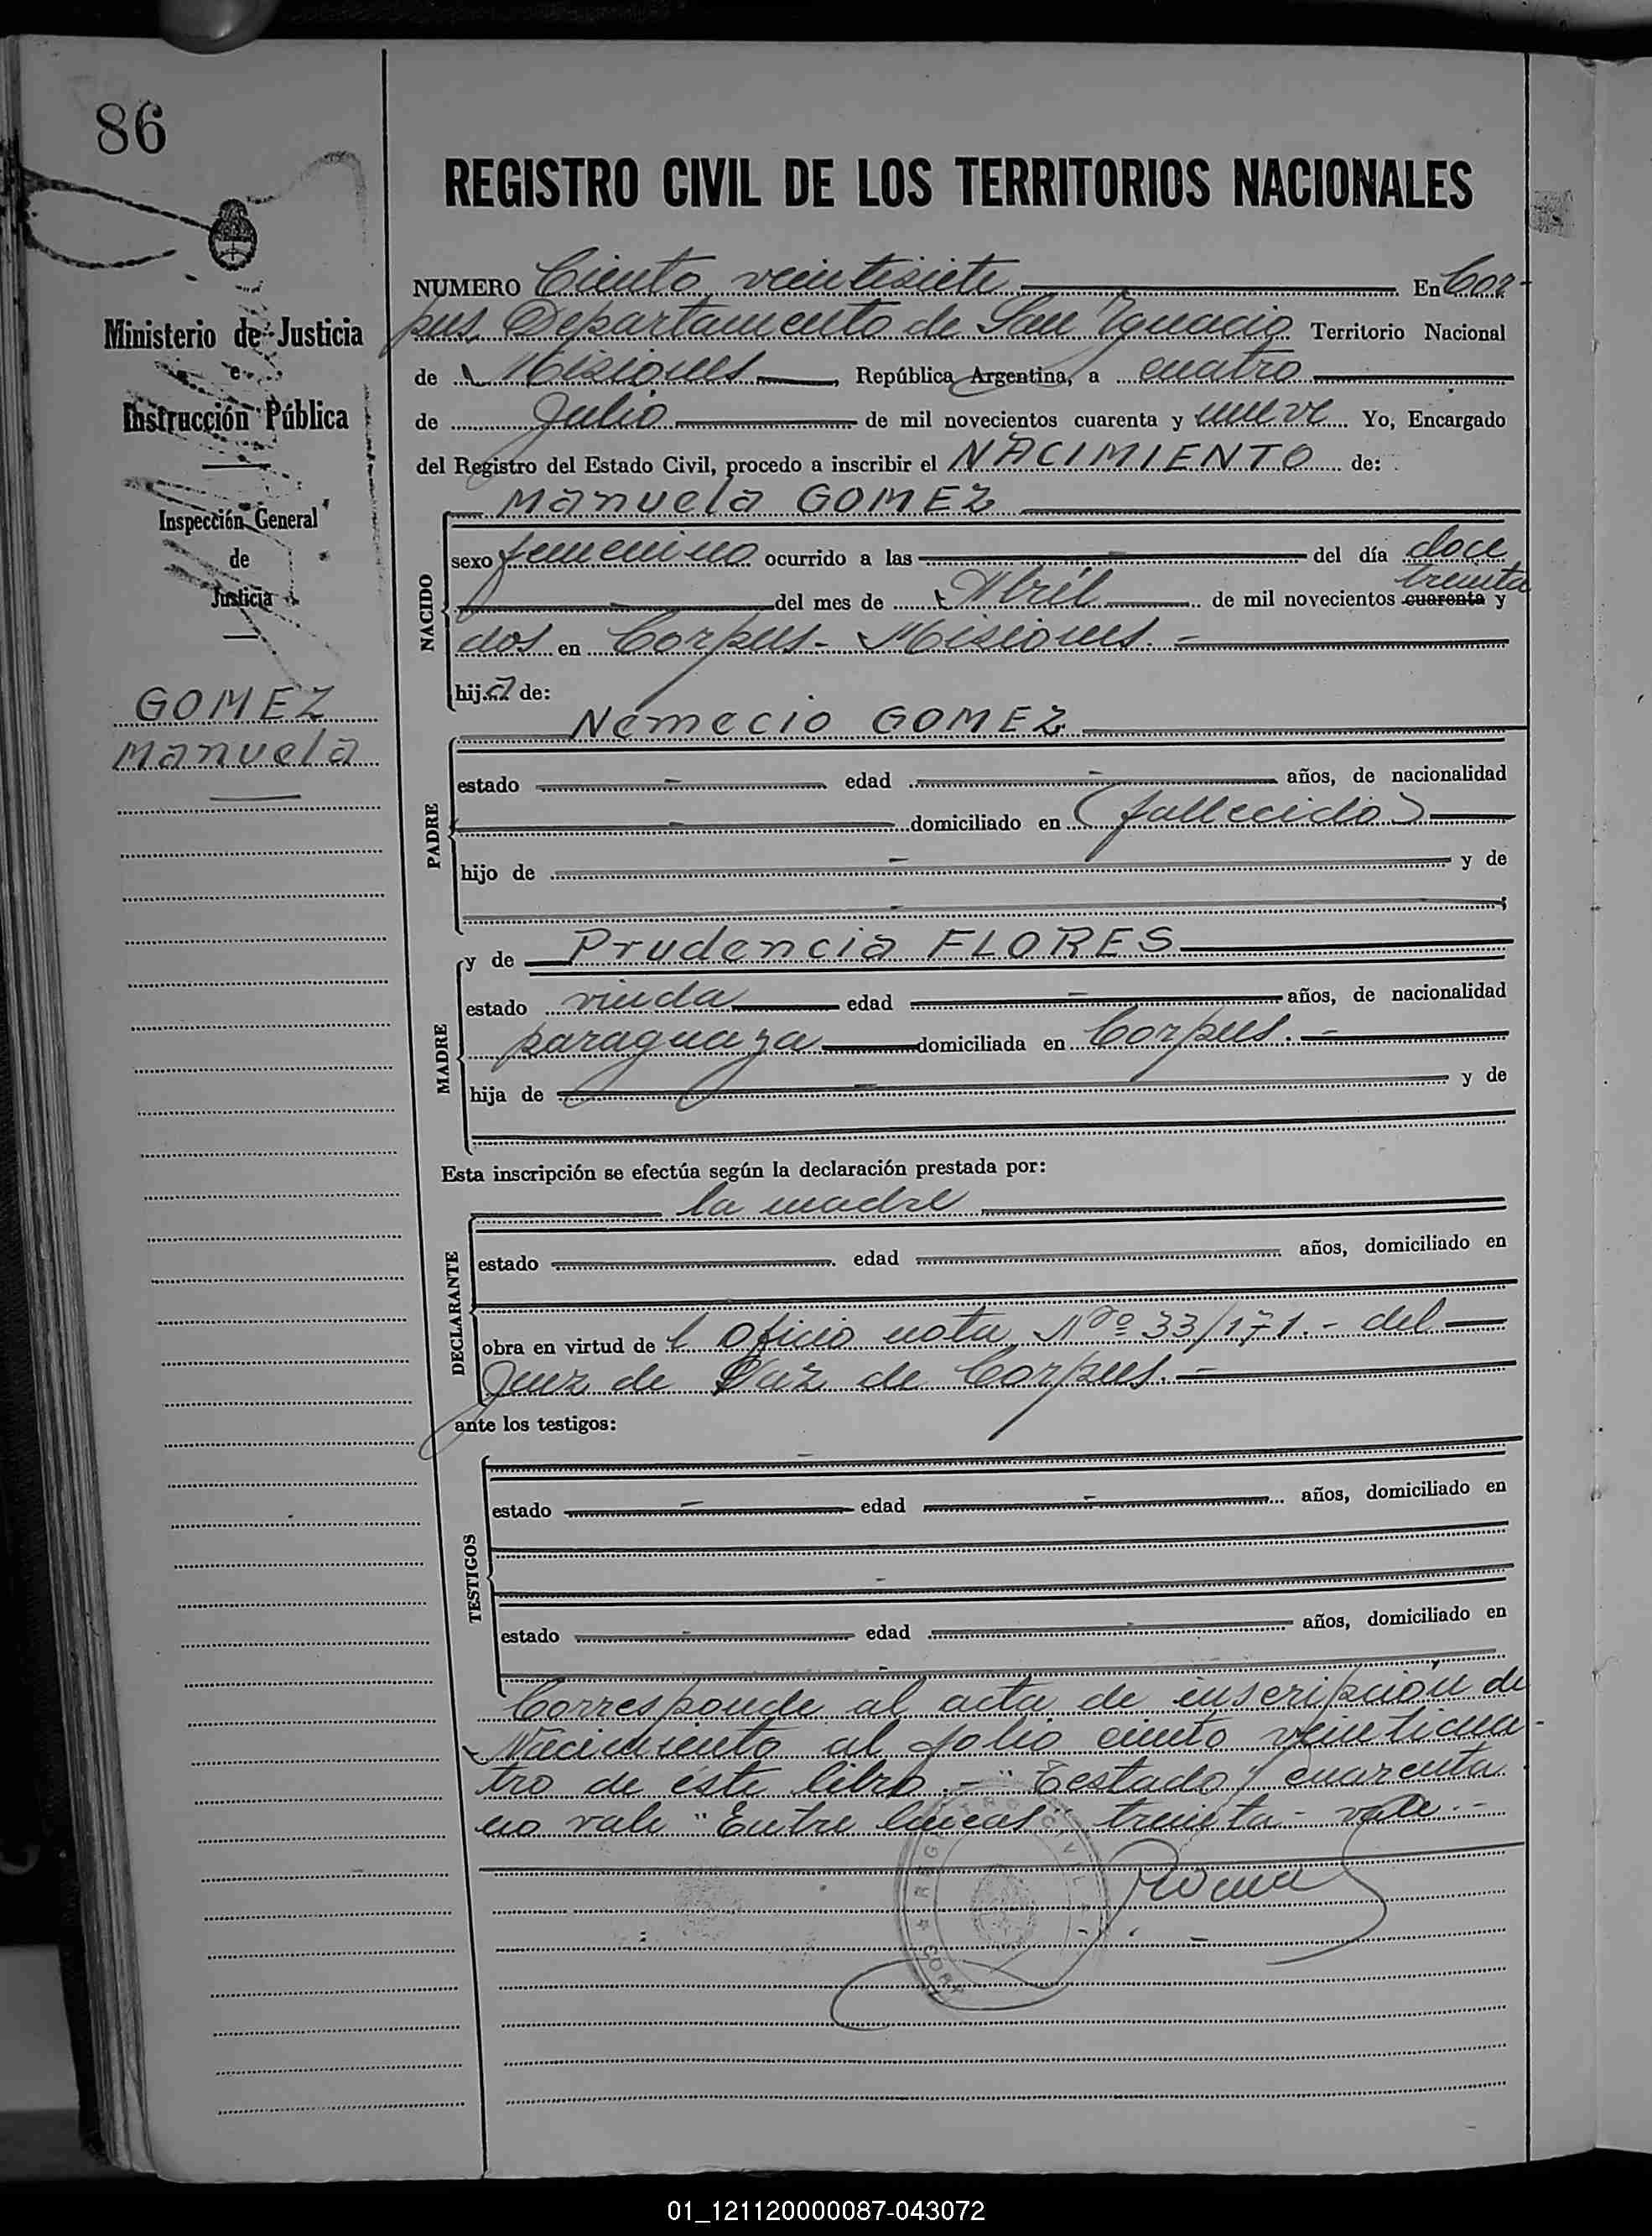 86
REGISTRO CIVIL DE LOS TERRITORIOS NACIONALES
Ministerio de Justicia
e
Instrucción Pública
Inspección General
de
Justicia
GOMEZ
Manuela
NUMERO Ciento veintisiete En Cor-
pus Departamento de San Ygnacio Territorio Nacional
de Misiones, República Argentina, a cuatro
de Julio de mil novecientos cuarenta y nueve Yo, Encargado
del Registro del Estado Civil, procedo a inscribir el NACIMIENTO de:
Manuela GOMEZ
NACIDO
sexo femenino ocurrido a las - del día doce
treinta
del mes de Abril de mil novecientos cuarenta y
dos en Corpus - Misiones. -
hija de:
Nemecio GOMEZ
PADRE
estado - edad - años, de nacionalidad
- domiciliado en (fallecido)
hijo de - y de
-
y de Prudencia FLORES
MADRE
estado viuda edad - años, de nacionalidad
paraguaya domiciliada en Corpus. -
hija de - y de
Esta inscripción se efectúa según la declaración prestada por:
la madre
DECLARANTE
estado edad años, domiciliado en
obra en virtud de l Oficio nota Nº 33/171.- del
Juez de Paz de Corpus. -
ante los testigos:
-
TESTIGOS
estado - edad - años, domiciliado en
-
estado - edad - años, domiciliado en
-
Corresponde al acta de inscripción de
Nacimiento al folio ciento veinticua-
tro de éste libro.- "Testado" cuarenta
no vale "Entre lineas" treinta - vale.-
REGISTRO CIVIL
01_121120000087-043072